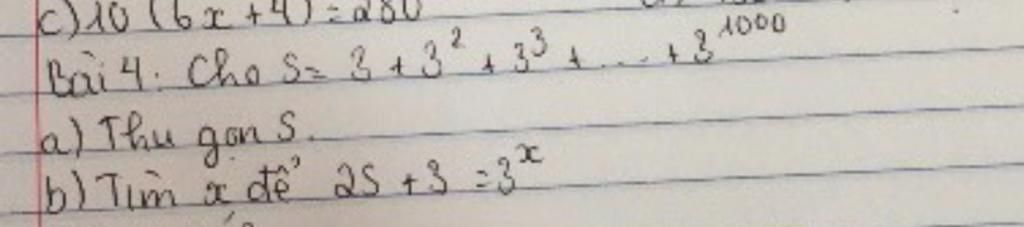 c) 10 (6x + 4) = 280
Bài 4: Cho S = 3 + 3² + 3³ + ... + 3¹⁰⁰⁰
a) Thu gọn S.
b) Tìm x để 2S + 3 = 3ˣ